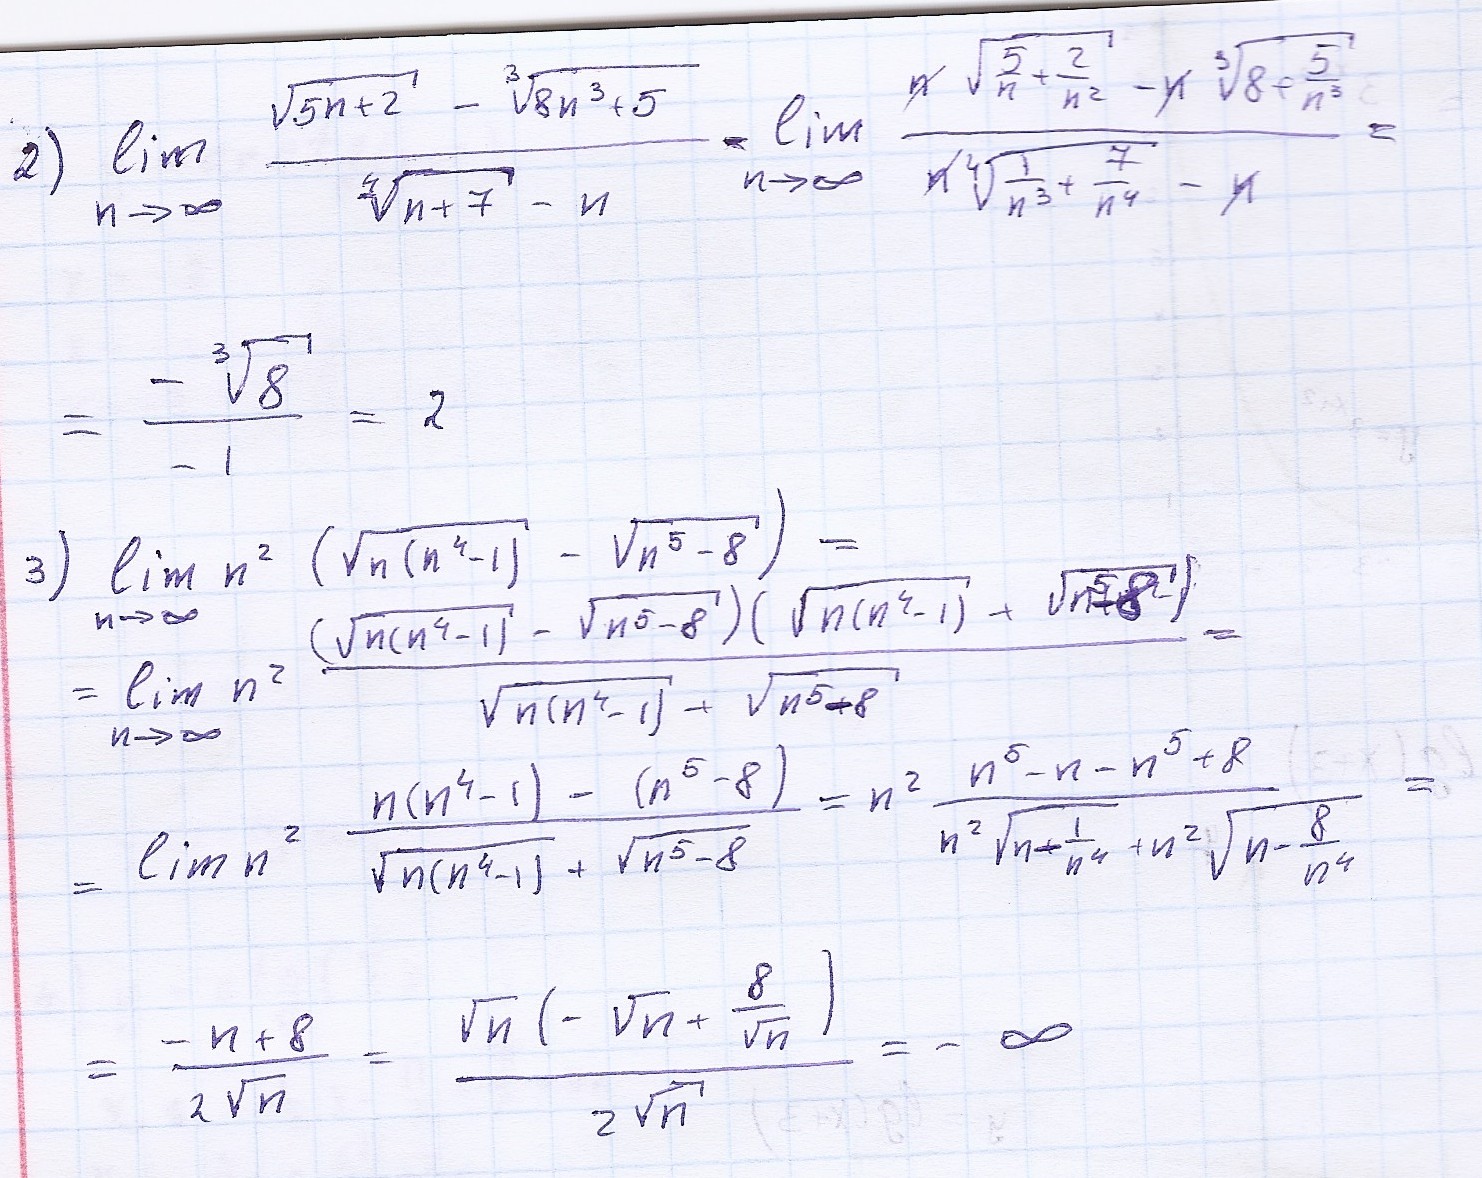 2) lim n→∞ (√(5n+2) − ∛(8n³+5)) / (∜(n+7) − n) = lim n→∞ (n √(5/n + 2/n²) − n ∛(8 + 5/n³)) / (n ∜(1/n³ + 7/n⁴) − n) =
= −∛8 / −1 = 2
3) lim n→∞ n² (√(n(n⁴−1)) − √(n⁵−8)) =
= lim n→∞ n² (√(n(n⁴−1)) − √(n⁵−8))(√(n(n⁴−1)) + √(n⁵−8)) / (√(n(n⁴−1)) + √(n⁵−8)) =
= lim n² (n(n⁴−1) − (n⁵−8)) / (√(n(n⁴−1)) + √(n⁵−8)) = n² (n⁵−n−n⁵+8) / (n² √(n−1/n⁴) + n² √(n−8/n⁴)) =
= (−n+8) / (2√n) = √n (−√n + 8/√n) / (2√n) = −∞